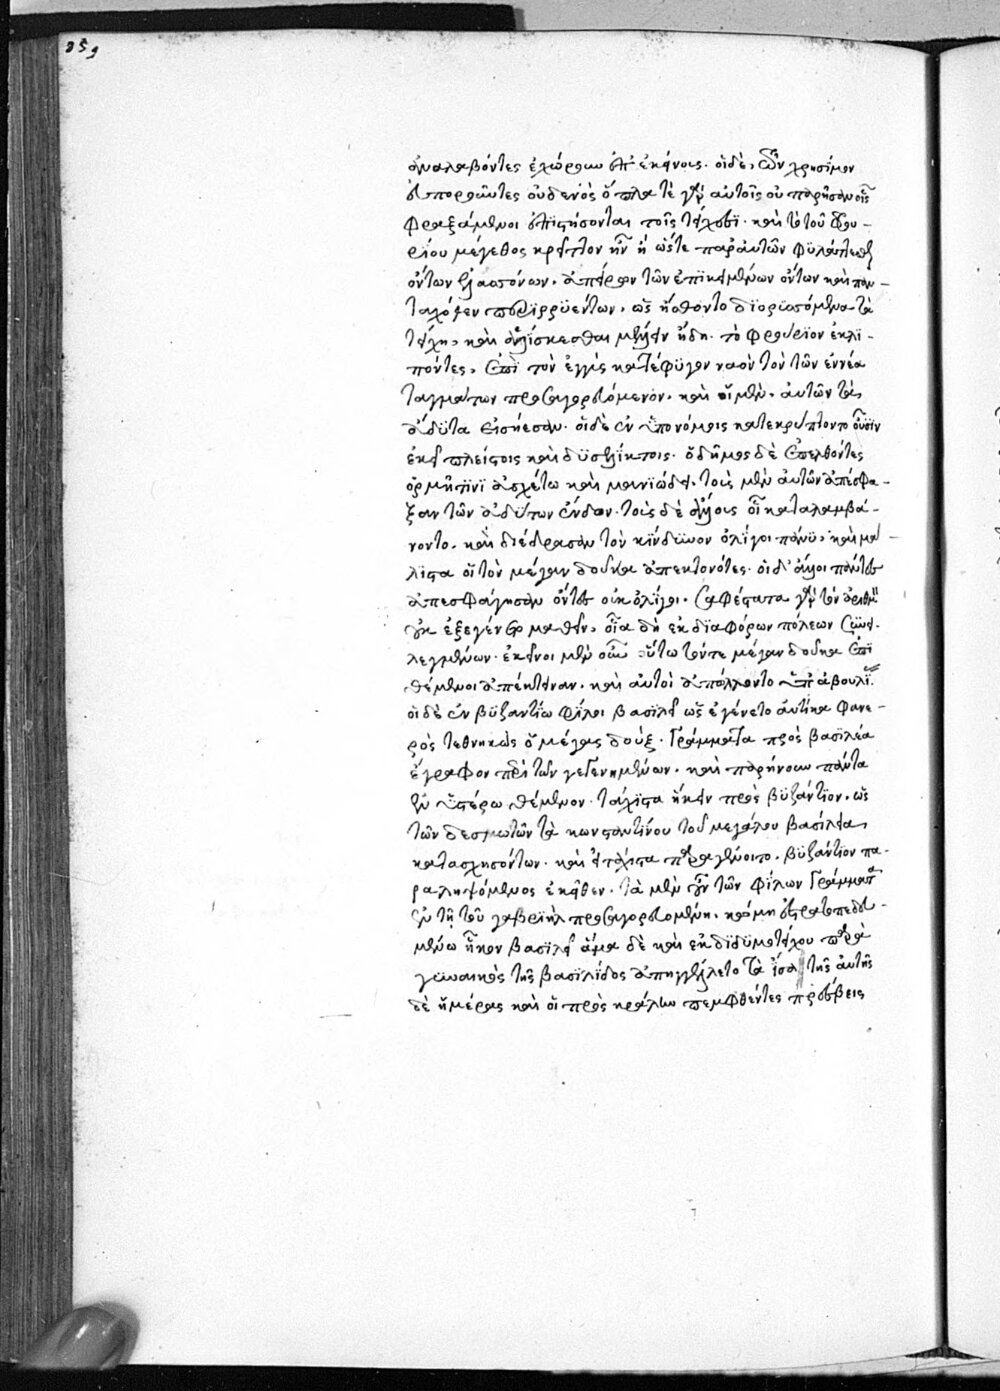 359
ἀναλαβόντες ἐχώρουν ἐπ' ἐκείνους. οἱ δὲ, ὧν χρησίμον
εὐποροῦντες οὐδενὸς ὅπλα τὲ γὰρ αὐτοῖς οὐ παρῆσαν οἷς
φραξάμενοι ἐπιστήσονται τοῖς τείχεσϊ. καὶ τὸ τοῦ φρου-
ρίου μέγεθος κρεῖττον ἦν ἢ ὥστε παρ' αὐτῶν φϋλάττεσθαι
ὄντων ἐλασσόνων. ἀπείρων τῶν ἐπϊκειμένων ὄντων καὶ παν-
ταχόθεν περϊρρϋέντων, ὡς ᾔσθοντο δϊορϋσσόμενα τὰ
τείχη, καὶ ἁλίσκεσθαι μέλλειν ἤδη. τὸ φρούρϊον ἐκλϊ-
πόντες, ἐπὶ τὸν ἐγγὺς κατέφϋγον ναὸν τὸν τῶν ἐννέα
ταγμάτων προσαγορευόμενον. καὶ οἱ μὲν, αὐτῶν τὰ
ἄδϋτα εἰσήεσαν. οἱ δὲ ἐν ὑπονόμοις κατεκρύπτοντο οὖσϊν
ἐκεῖ πλείστοις καὶ δϋσεξελίκτοις. ὁ δῆμος δὲ ἐπελθόντες
ὁρμῇ τϊνϊ ἀσχέτω καὶ μανϊώδει. τοὺς μὲν αὐτῶν ἀπέσφα-
ξαν τῶν ἀδύτων ἔνδον. τοὺς δὲ ἄλλους οἷ καταλαμβά-
νοντο. καὶ διέδρασαν τὸν κίνδϋνον ὀλίγοι πάνϋ, καὶ μά-
λϊστα οἱ τὸν μέγαν δοῦκα ἀπεκτονότες. οἱ δ' ἄλλοι πάντες
ἀπεσφάγησαν ὄντες οὐκ ὀλίγοι. σαφέστατα γὰρ τὸν ἀριθμὸν
οὐκ ἐξεγένετο μαθεῖν, οἷα δὴ ἐκ δϊαφόρων πόλεων σϋνει-
λεγμένων. ἐκεῖνοι μὲν οὖν οὕτω τόντε μέγαν δοῦκα ἐπϊ
θέμενοι ἀπέκτειναν. καὶ αὐτοὶ ἀπόλλοντο ὑπ' ἀβουλίας.
οἱ δὲ ἐν βϋζαντίω φίλοι βασιλεῖ ὡς ἐγένετο αὐτίκα φανε-
ρὸς τεθνηκὼς ὁ μέγας δοὺξ. γράμματα πρὸς βασιλέα
ἔγραφον περὶ τῶν γεγενημένων. καὶ παρῄνουν πάντα
ἐν ὑστέρω θέμενον. τάχϊστα ἥκειν πρὸς βϋζάντϊον. ὡς
τῶν δεσμωτῶν τὰ κωνσταντίνου τοῦ μεγάλου βασίλεια,
κατασχησόντων. καὶ εἰ τάχιστα παραγένοιτο. βϋζάντϊον πα-
ραληψόμενος ἐκεῖθεν. τὰ μὲν οὖν τῶν φίλων γράμματα
ἐν τῇ τοῦ γαβριὴλ προσαγορευομένη. κώμη ἐστρατοπεδευ-
μένω ἧκον βασιλεῖ ἅμα δὲ καὶ ἐκ δϊδϋμοτείχου παρὰ
γϋναικὸς τῆς βασϊλίδος ἀπηγγέλετο τὰ ἴσα τῆς αὐτῆς
δὲ ἡμέρας καὶ οἱ πρὸς κράλην πεμφθέντες πρέσβεις